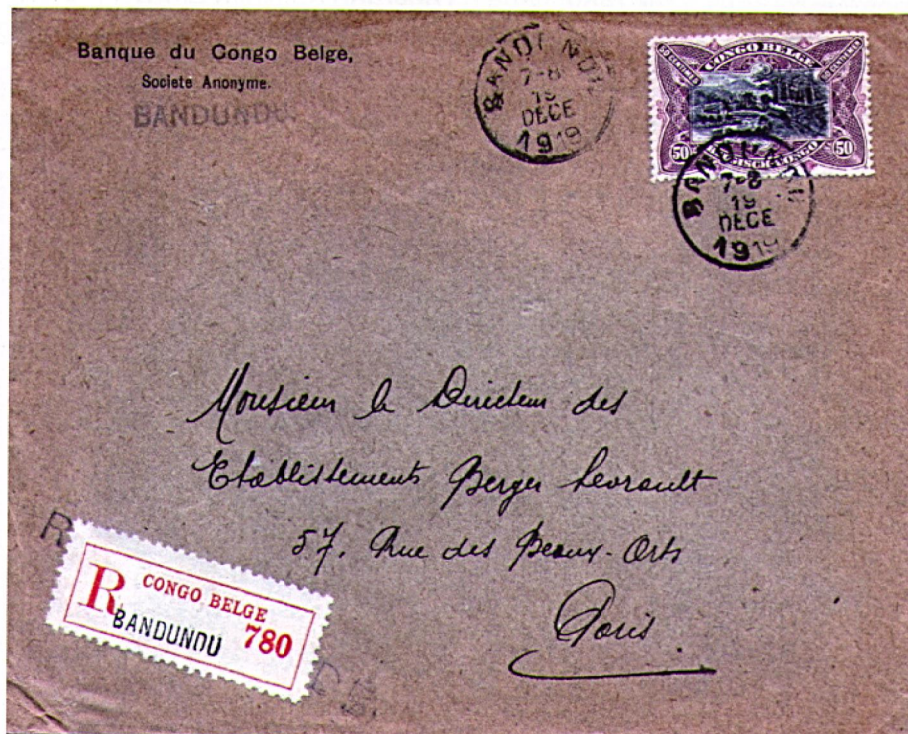 Banque du Congo Belge,
Societe Anonyme.
BANDUNDU
BANDUNDU
7-8
19
DECE
1919
50 CENTIMES
CONGO BELGE
50 CENTIMES
50
50
BANDUNDU
7-8
19
DECE
1919
Monsieur le Directeur des
Etablissements Berger Levrault
57. Rue des Beaux-Arts
Paris
R
CONGO BELGE
R
BANDUNDU 780